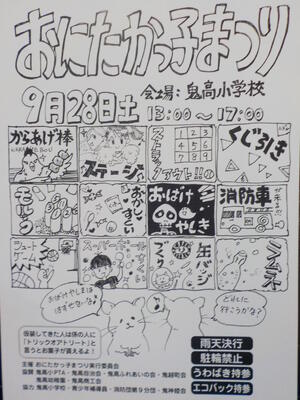 おにたかっ子まつり
9月28日土
会場:鬼高小学校
13:00～17:00
からあげ棒
KARAAGE BOU
ステージ
ストラックアウト!!
1 2 3
4 5 6
7 8 9
くじ引き
モルック
おかしすくい
おばけやしき
消防車
が来る!!
シュートゲーム
スーパーボールすくい
缶バッジづくり
おばけやしきははずせないな!
どれに行こうかな?
仮装してきた人は係の人に
「トリックオアトリート」と
言うとお菓子が貰えるよ!
雨天決行
駐輪禁止
うわばき持参
エコバック持参
主催 おにたかっ子まつり実行委員会
協賛 鬼高小PTA・鬼高自治会・鬼高ふれあいの会・鬼越町会
鬼高幼稚園・鬼高商工会
協力 鬼高小学校・青少年補導員・消防団第9分団・鬼神姫会